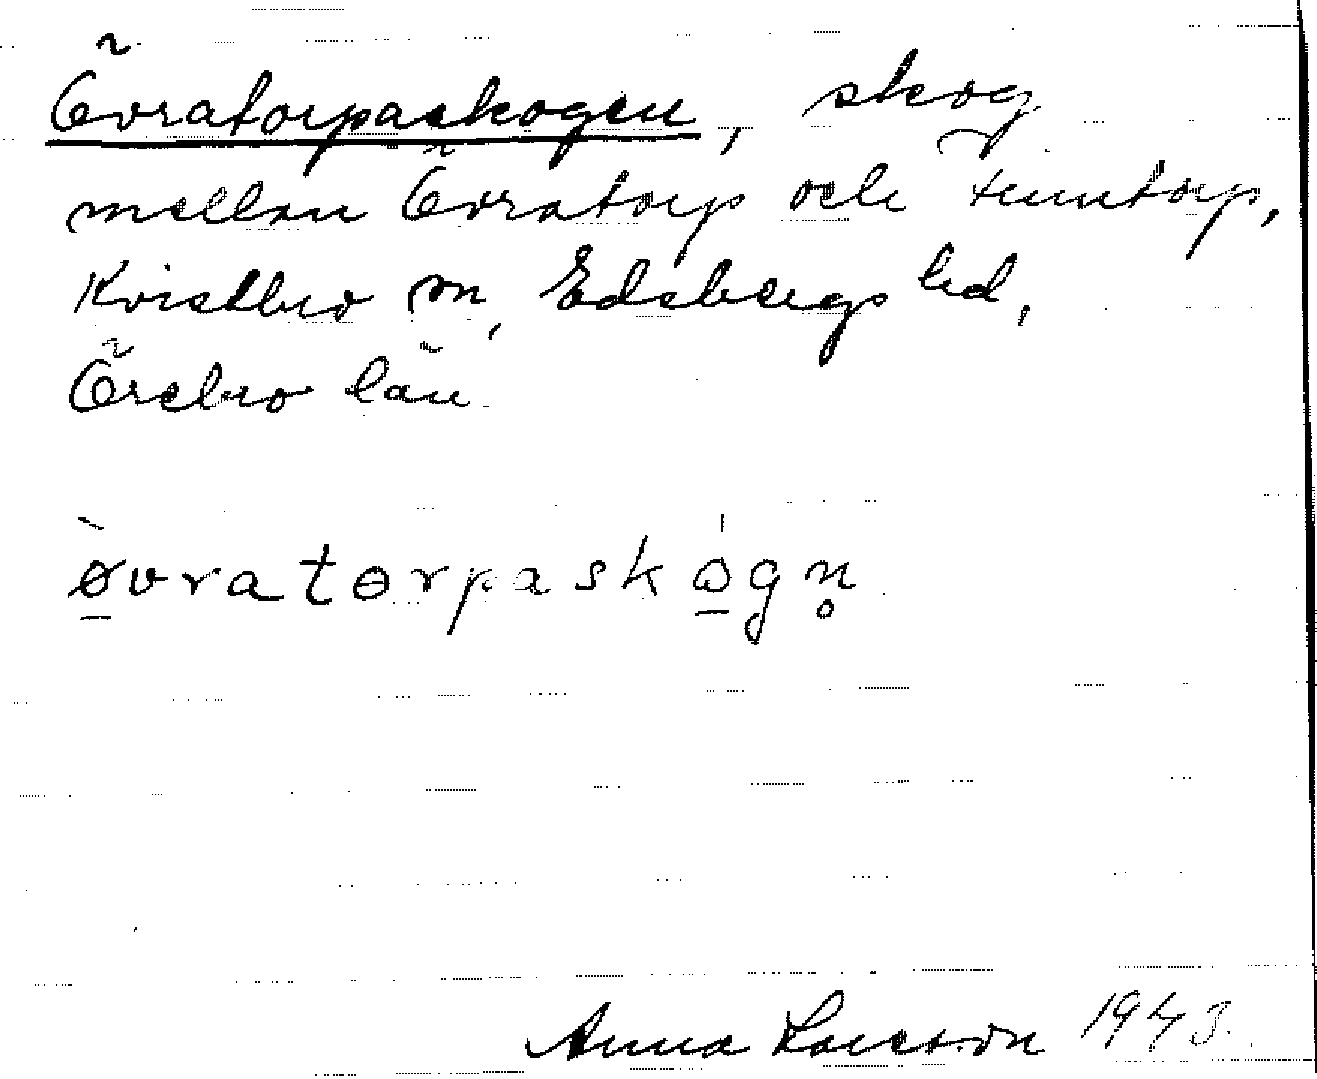 Övratorpaskogen, skog
mellan Övratorp och Humtorp,
Kvistbro sn, Edsbergs hd,
Örebro län
ø̀vratɵrpaskɷ́gn̥
Anna Larsson 1943.